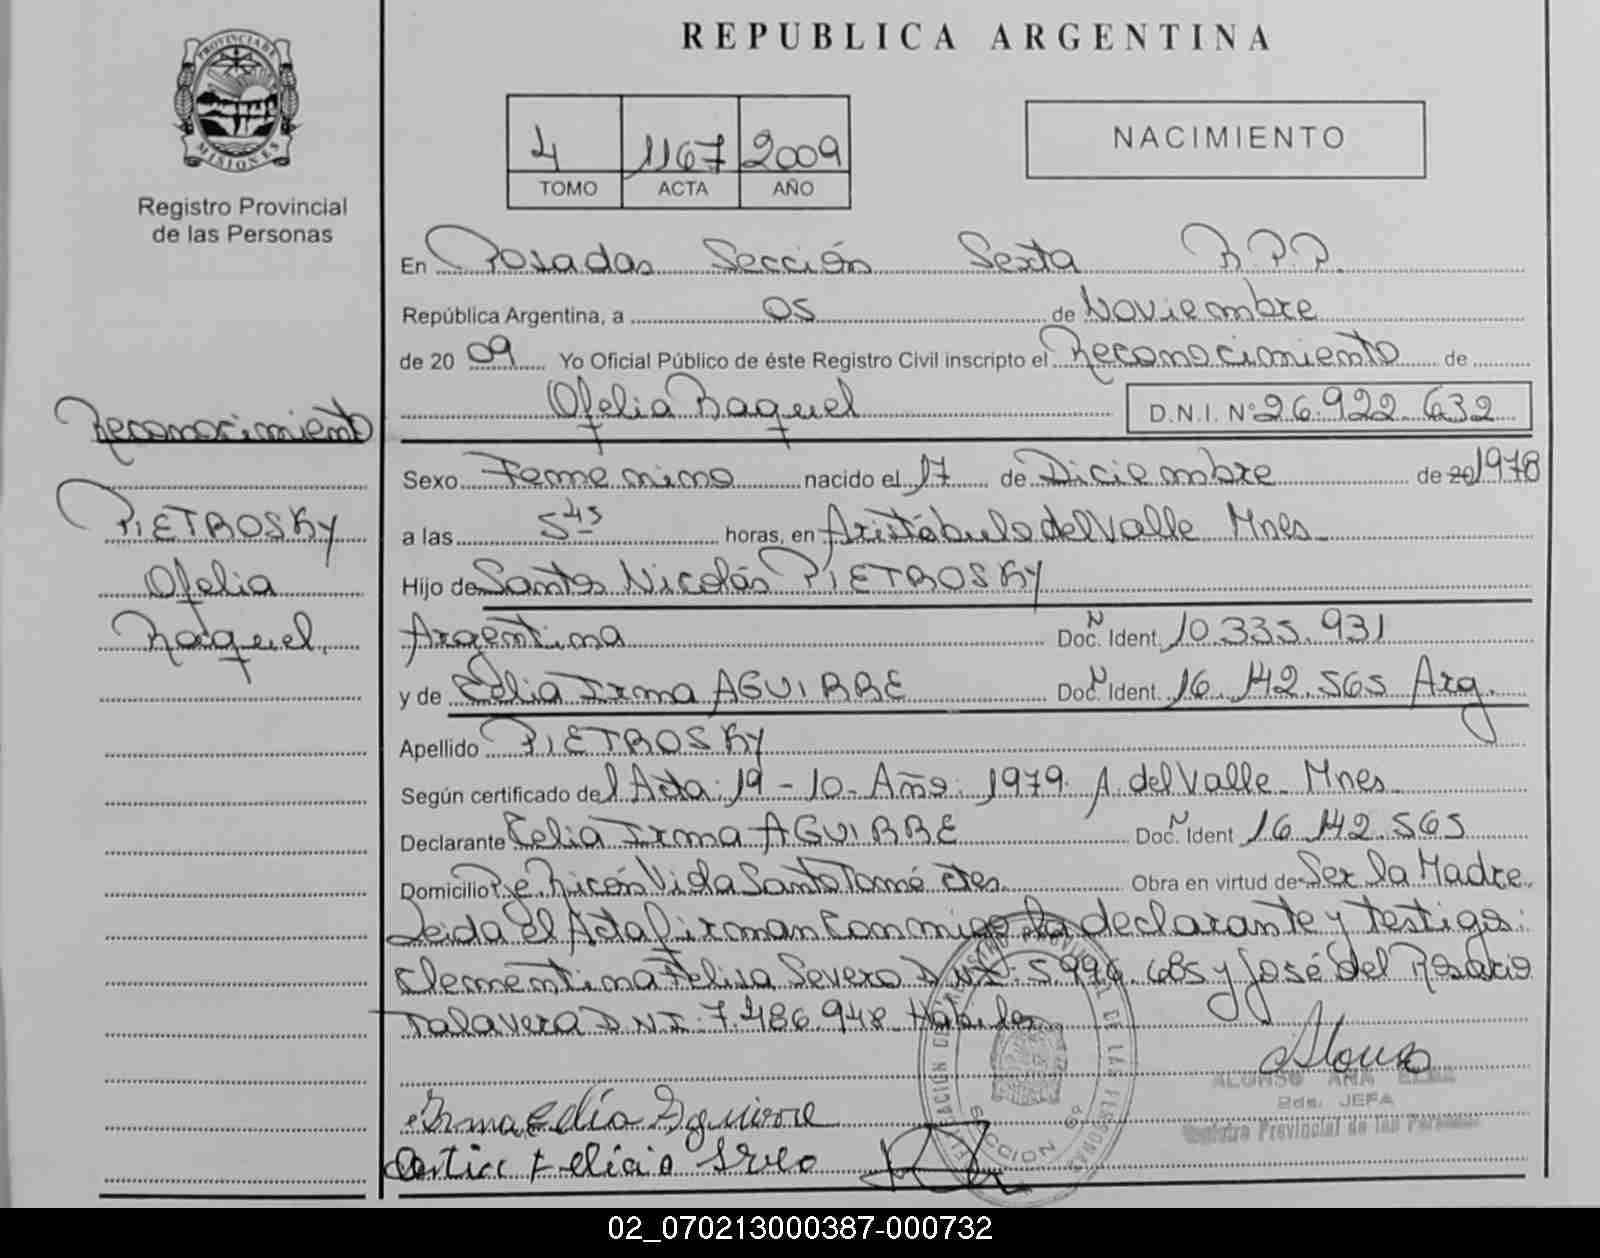 PROVINCIA DE
MISIONES
Registro Provincial
de las Personas
Reconocimiento
PIETROSKY
Ofelia
Raquel.
REPUBLICA ARGENTINA
4 1167 2009
TOMO ACTA AÑO
NACIMIENTO
En Posadas Sección Sexta R.P.P.
República Argentina, a 05 de Noviembre
de 2009 Yo Oficial Público de éste Registro Civil inscripto el Reconocimiento de
Ofelia Raquel D.N.I. Nº 26.922.632
Sexo Femenino nacido el 17 de Diciembre de 20 1978
a las 5 45 horas, en Aristóbulo del Valle Mnes
Hijo de Santos Nicolás PIETROSKY
Argentina Doc. N Ident. 10.335.931
y de Edlia Irma AGUIRRE Doc. N Ident. 16.142.565 Arg.
Apellido PIETROSKY
Según certificado del Acta: 19 - 10- Año: 1979. A. del Valle Mnes
Declarante Celia Irma AGUIRRE Doc. N Ident 16.142.565
Domicilio Pje Ricón Vida Santo Tomé Ctes Obra en virtud de Ser la Madre.
Leida el Acta firman conmigo la declarante y testigos:
Clementina Felisa Severo D.N.I: 5.996.685 y José del Rosario
Talavera D.N.I: 7.486.948 Hábiles
ALONSO ANA ELBA
2da. JEFA
Registro Provincial de las Personas
Irma Edlia Aguirre
SECCION 6º
02_070213000387-000732